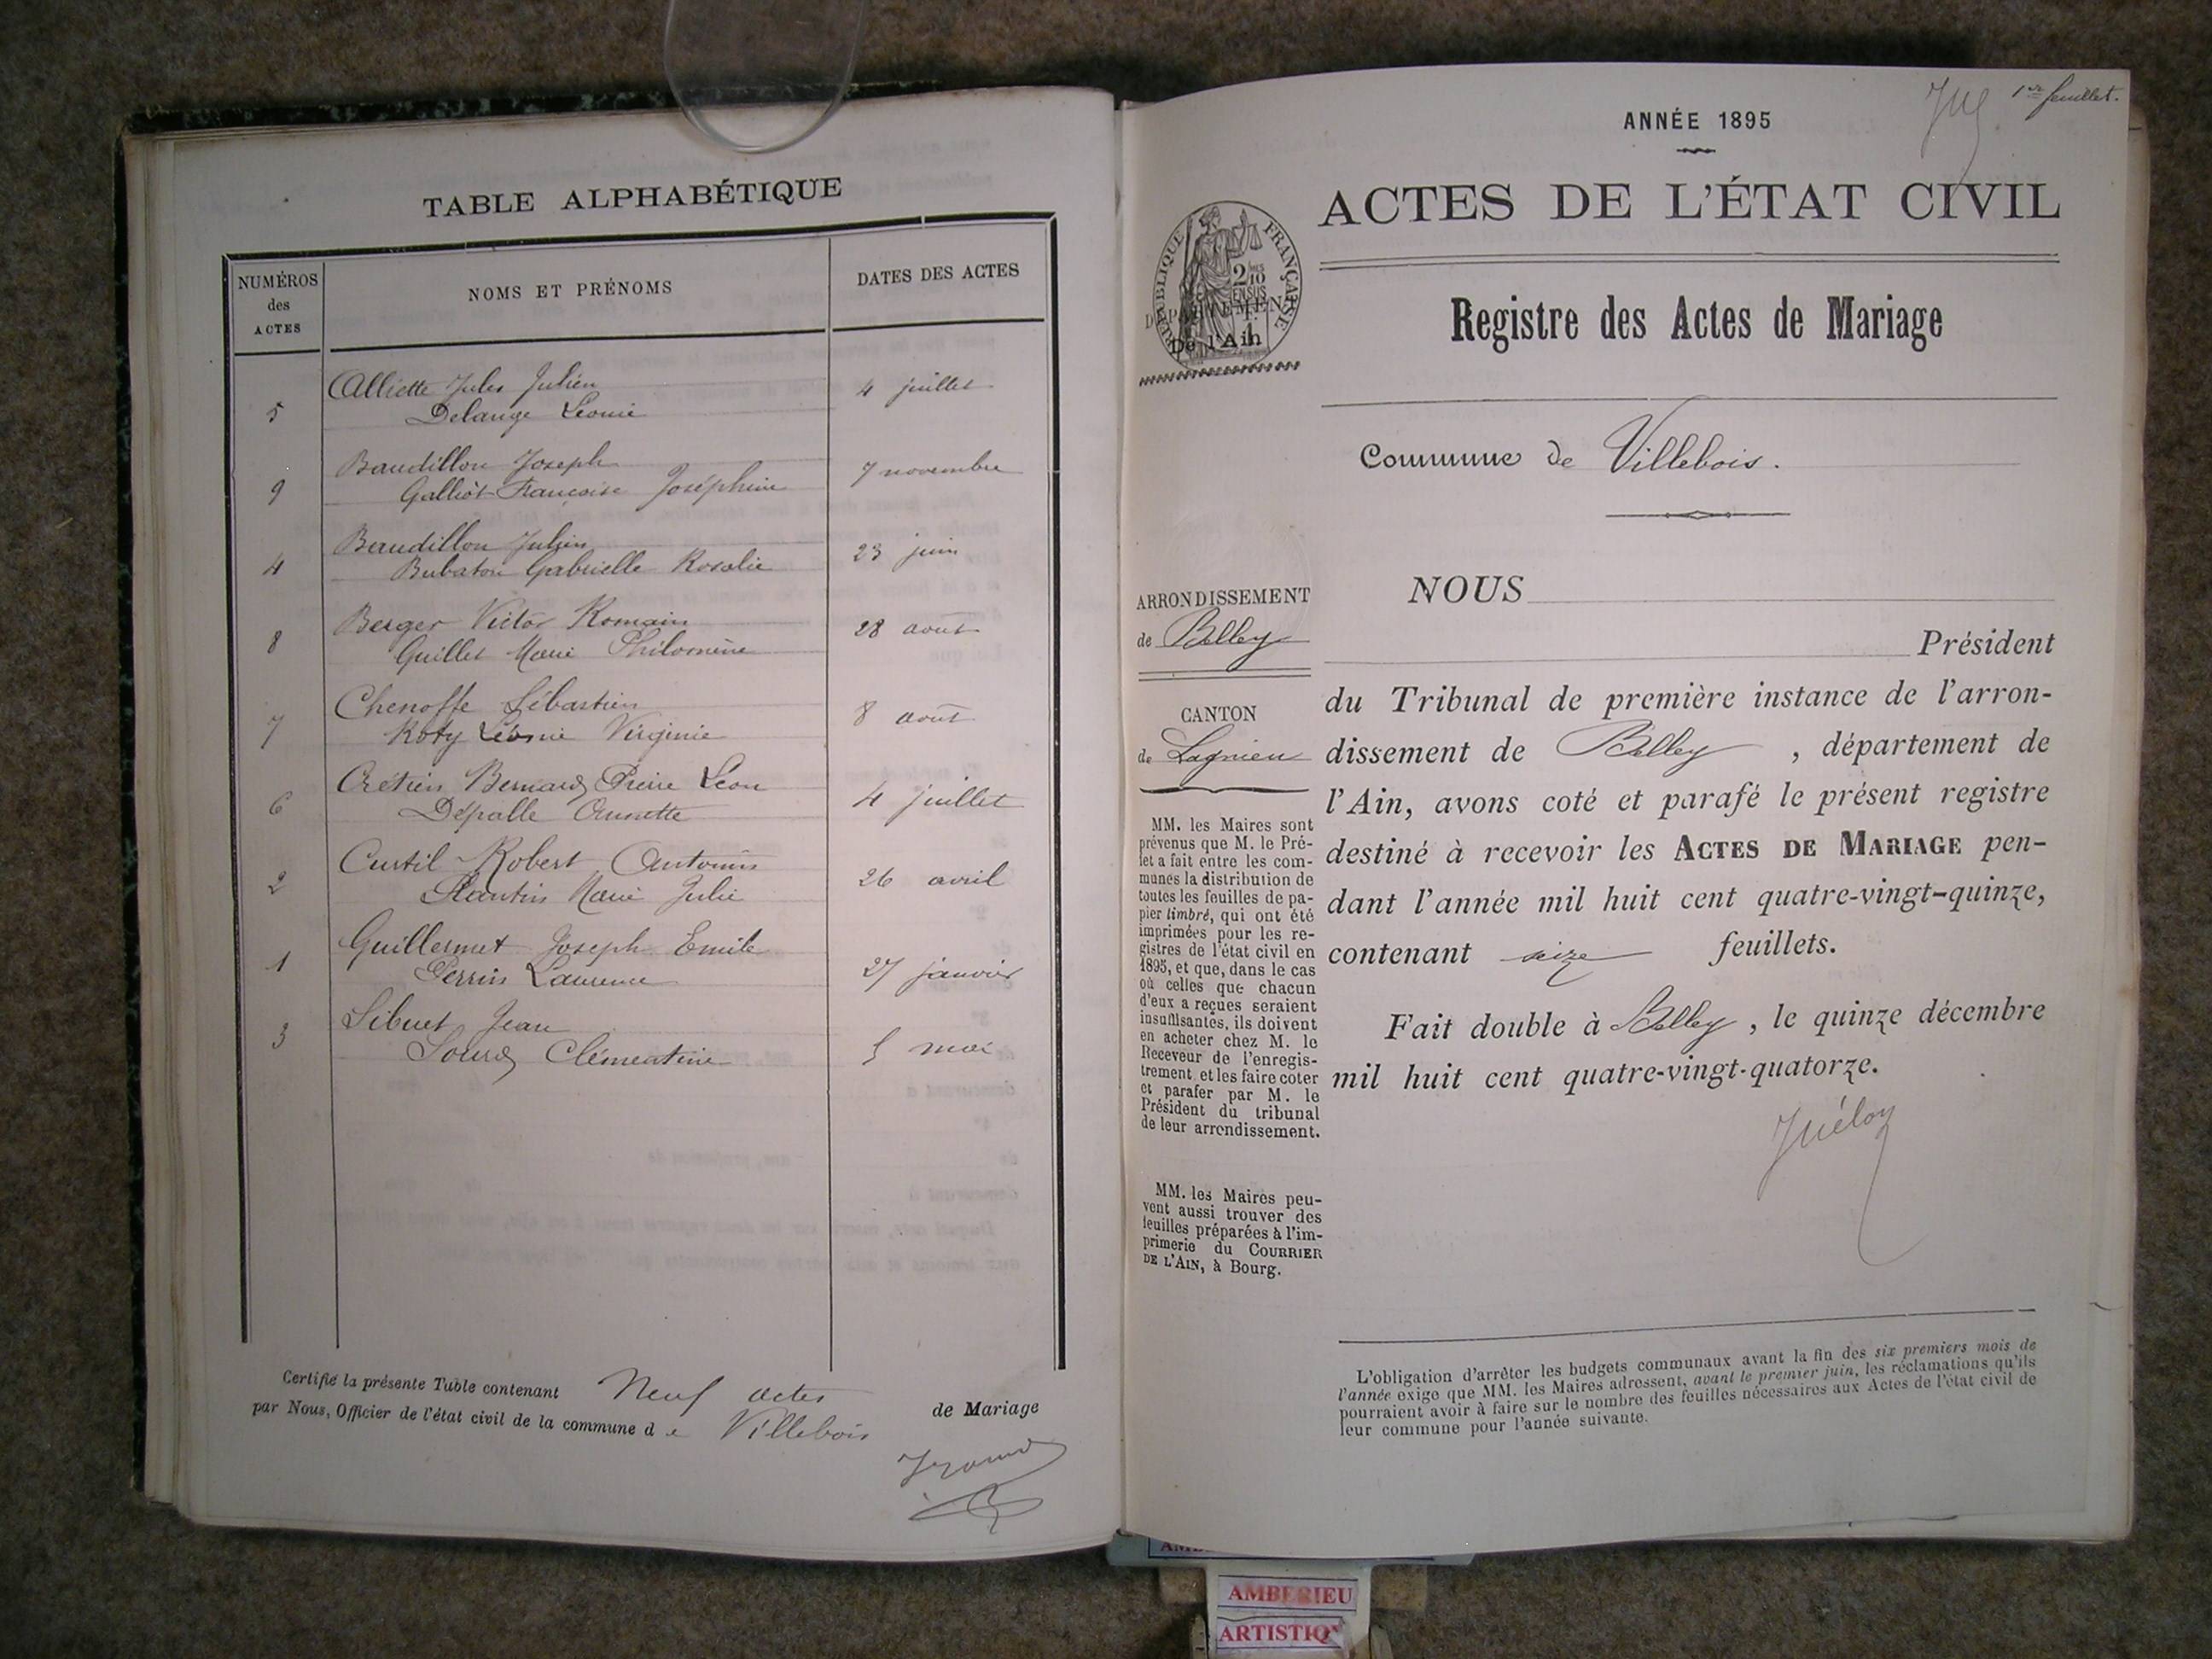 TABLE ALPHABÉTIQUE
NUMÉROS
des
ACTES
NOMS ET PRÉNOMS
DATES DES ACTES
Alliette Jules Julien
5 Delange Léonie 4 juillet
Baudillon Joseph
9 Galliot Françoise Joséphine 7 novembre
Baudillon Julien
4 Bubaton Gabrielle Rosalie 23 juin
Berger Victor Romain
8 Guillet Marie Philomène 28 août
Chenoffe Sébastien
7 Roty Léonie Virginie 8 août
Crétien Bernard Pierre Léon
6 Dépalle Annette 4 juillet
Curtil Robert Antonin
2 Plantin Marie Julie 26 avril
Guillermet Joseph Emile
1 Perrin Laurence 27 janvier
Sibuet Jean
3 Sourd Clémentine 5 mai
Certifié la présente Table contenant Neuf actes de Mariage
par Nous, Officier de l'état civil de la commune de Villebois
1er feuillet.
ANNÉE 1895
ACTES DE L'ÉTAT CIVIL
RÉPUBLIQUE FRANÇAISE
2 MES
10
EN SUS
DÉPARTEMENT
De l'Ain
Registre des Actes de Mariage
Commune de Villebois.
ARRONDISSEMENT
de Belley
CANTON
de Lagnieu
MM. les Maires sont
prévenus que M. le Pré-
fet a fait entre les com-
munes la distribution de
toutes les feuilles de pa-
pier timbré, qui ont été
imprimées pour les re-
gistres de l'état civil en
1895, et que, dans le cas
où celles que chacun
d'eux a reçues seraient
insuffisantes, ils doivent
en acheter chez M. le
Receveur de l'enregis-
trement et les faire coter
et parafer par M. le
Président du tribunal
de leur arrondissement.
MM. les Maires peu-
vent aussi trouver des
feuilles préparées à l'im-
primerie du COURRIER
DE L'AIN, à Bourg.
NOUS
Président
du Tribunal de première instance de l'arron-
dissement de Belley, département de
l'Ain, avons coté et parafé le présent registre
destiné à recevoir les ACTES DE MARIAGE pen-
dant l'année mil huit cent quatre-vingt-quinze,
contenant seize feuillets.
Fait double à Belley, le quinze décembre
mil huit cent quatre-vingt-quatorze.
L'obligation d'arrêter les budgets communaux avant la fin des six premiers mois de
l'année exige que MM. les Maires adressent, avant le premier juin, les réclamations qu'ils
pourraient avoir à faire sur le nombre des feuilles nécessaires aux Actes de l'état civil de
leur commune pour l'année suivante.
AMBERIEU
ARTISTIQ